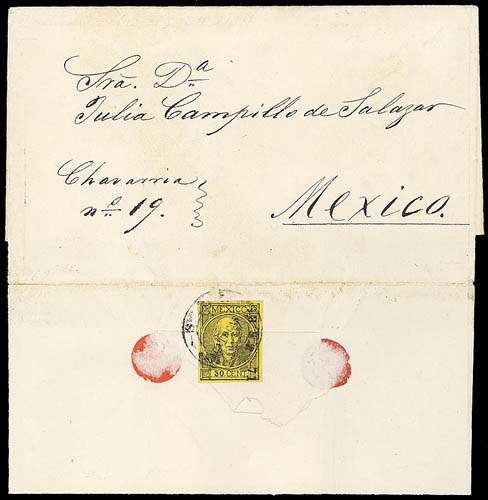 Sra. Dª
Julia Campillo de Salazar
Chavarria
nº 19.
Mexico.
MEXICO
50 CENT